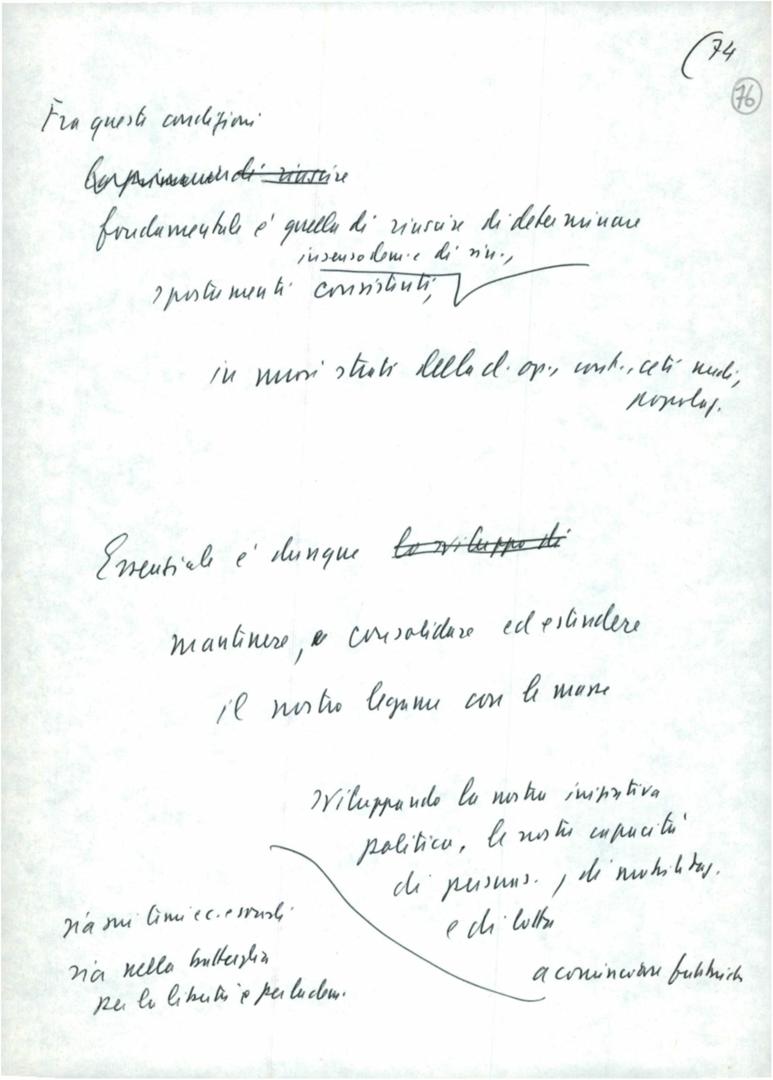 (74
76
Fra queste condizioni
di riuscire
fondamentale è quella di riuscire di determinare
in senso dem. e di sin.,
spostamenti consistenti,
in nuovi strati della cl. op., cont., ceti medi,
popolaz.
Essenziale è dunque lo sviluppo di
mantenere, e consolidare ed estendere
il nostro legame con le masse
sviluppando la nostra iniziativa
politica, le nostre capacità
di persuas., di mobilitaz.
e di lotta
a cominciare
sia sui temi ec. e sociali
sia nella battaglia
per la libertà e per la dem.